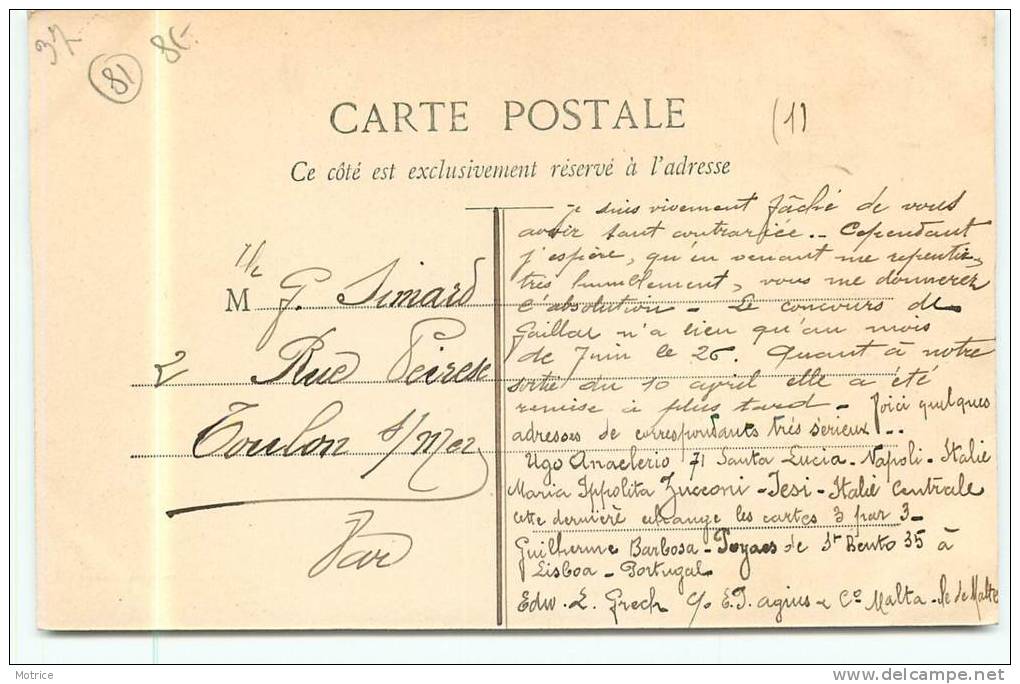 37
81
85
CARTE POSTALE
(11)
Ce côté est exclusivement réservé à l'adresse
Mlle G. Simard
2 Rue Peiresc
Toulon s/Mer
Var
Je suis vivement fâché de vous
avoir tant contrariée.. Cependant
j'espère, qu'en venant me repentir
très humblement, vous me donnerez
l'absolution - Le concours de
Gaillac n'a lieu qu'au mois
de Juin le 26. Quant à notre
sortie du 10 april elle a été
remise à plus tard - Voici quelques
adresses de correspondants très sérieux..
Ugo Anaclerio 71 Santa Lucia - Napoli - Italie
Maria Ippolita Zucconi - Jesi - Italie Centrale
cette dernière echange les cartes 3 par 3 -
Guilherme Barbosa - de St Bento 35 à
Lisboa - Portugal
Edw. L. Grech c/o E.T. agius & Co Malta - Ile de Malte
Motrice
www.delcampe.net